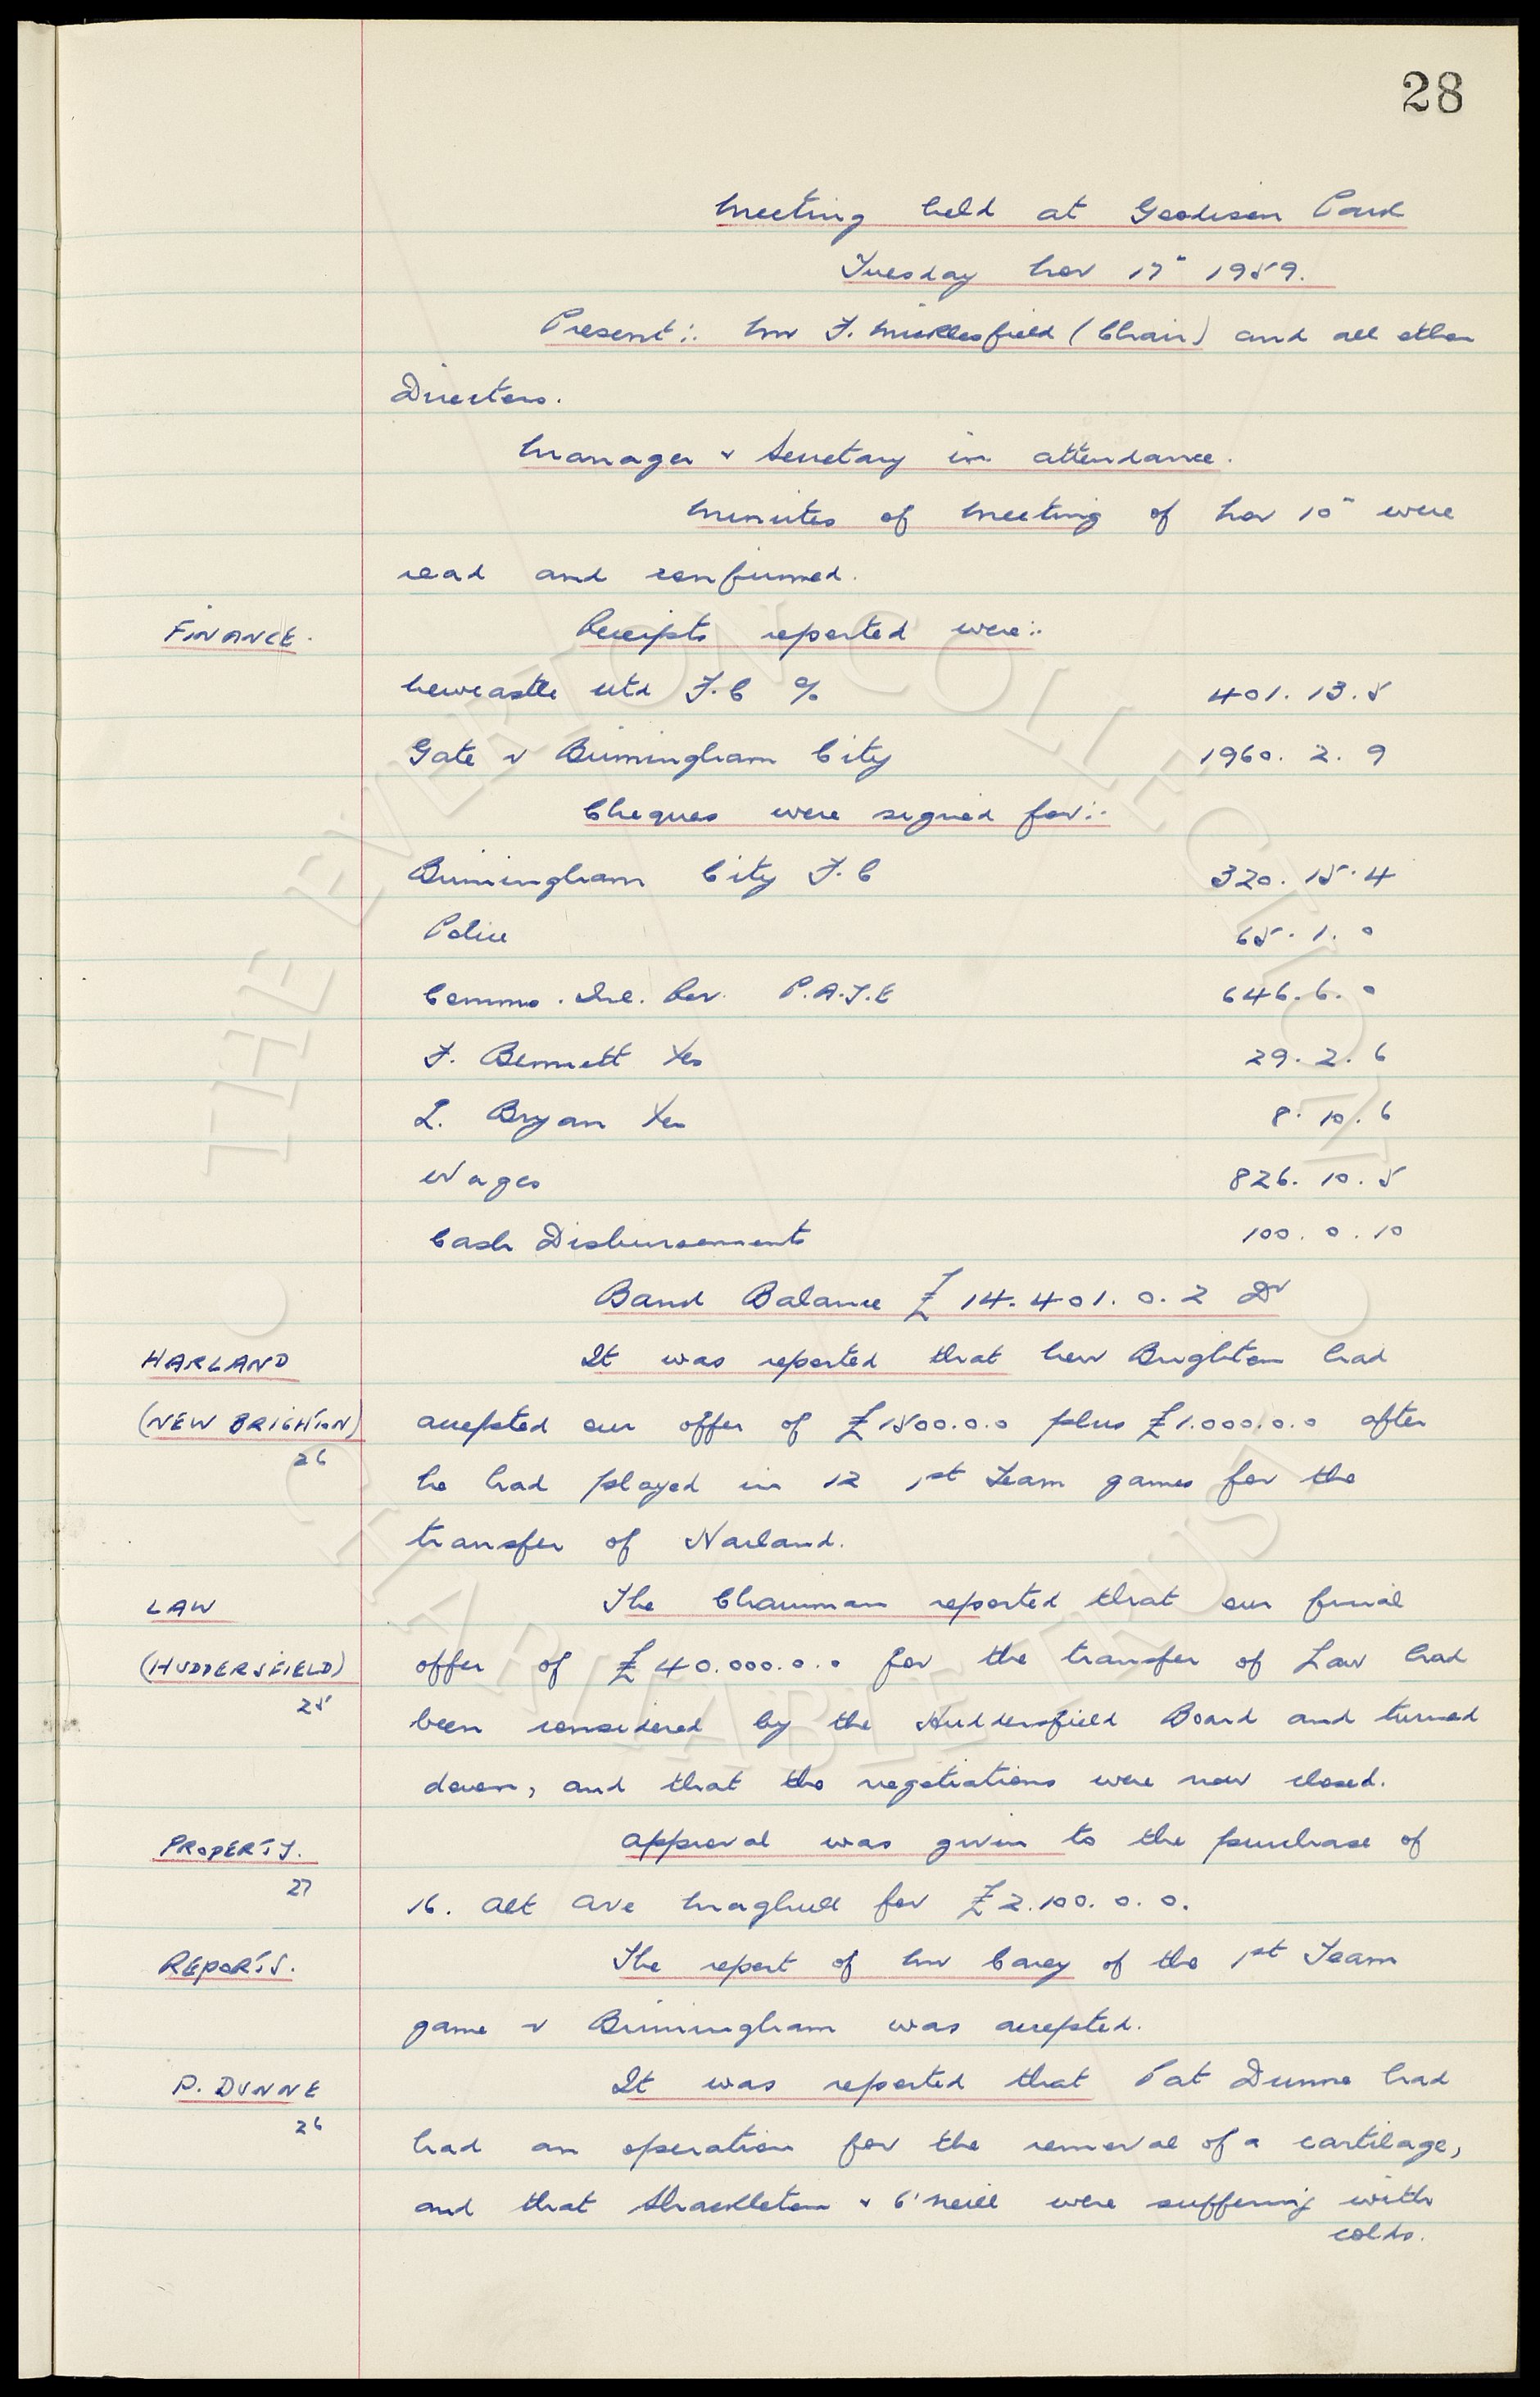 28
Meeting held at Goodison Park
Tuesday Nov 17" 1959.
Present:. Mr F. Micklesfield (Chair) and all other
Directors.
Manager & Secretary in attendance.
Minutes of Meeting of Nov 10" were
read and confirmed.
FINANCE. Receipts reported were:.
Newcastle Utd F.C % 401. 13. 5
Gate v Birmingham City 1960. 2. 9
Cheques were signed for:.
Birmingham City F.C 320. 15. 4
Police 65. 1. 0
Comms. Inl. Rev. P.A.Y.E 646. 6. 0
F. Bennett 29. 2. 6
L. Bryan 8. 10. 6
Wages 826. 10. 5
Cash Disbursements 100. 0. 10
Bank Balance £14.401. 0. 2 Dr
HARLAND It was reported that New Brighton had
(NEW BRIGHTON) accepted our offer of £1500.0.0 plus £1.000.0.0 after
26
he had played in 12 1st Team games for the
transfer of Harland.
LAW The Chairman reported that our final
(HUDDERSFIELD) offer of £40.000.0.0 for the transfer of Law had
25
been considered by the Huddersfield Board and turned
down, and that the negotiations were now closed.
PROPERTY. Approval was given to the purchase of
27
16. Alt Ave Maghull for £2.100. 0. 0.
REPORTS. The report of Mr Carey of the 1st Team
game v Birmingham was accepted.
P. DUNNE It was reported that Pat Dunne had
26
had an operation for the removal of a cartilage,
and that Shackleton & O'Neill were suffering with
colds.
THE EVERTON COLLECTION
CHARITABLE TRUST